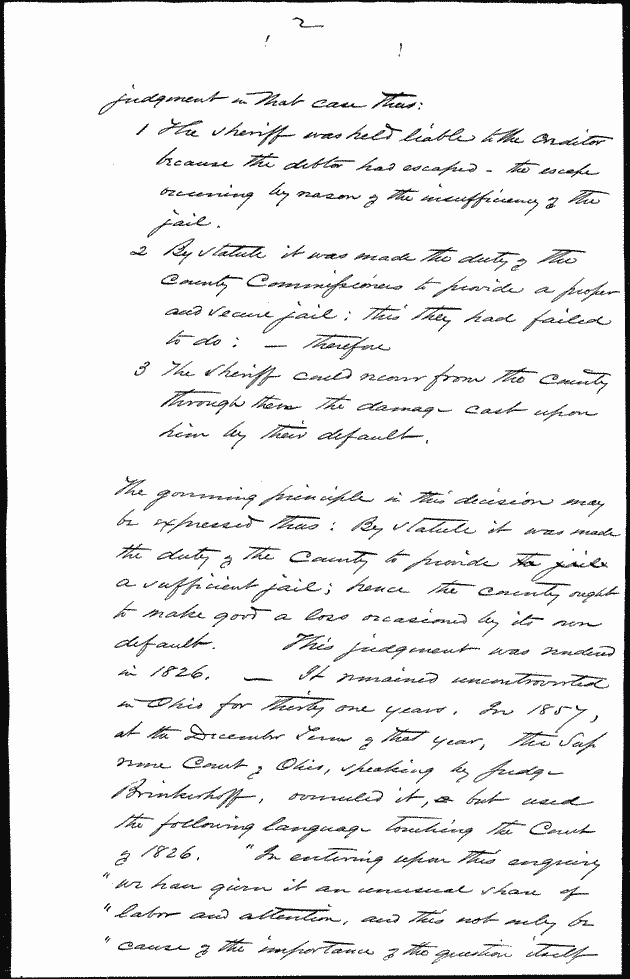 2
judgment in that case thus:
1 The sheriff was held liable to the creditor
because the debtor had escaped - the escape
occuring by reason of the insufficiency of the
jail.
2 By statute it was made the duty of the
County Commissioners to provide a proper
and secure jail; this they had failed
to do: — therefore
3 The sheriff could recover from the county
through them the damage cast upon
him by their default.
The governing principle in this decision may
be expressed thus: By statute it was made
the duty of the County to provide to jail
a sufficient jail; hence the county ought
to make good a loss occasioned by its own
default. This judgment was rendered
in 1826. — It remained uncontroverted
in Ohio for thirty one years. In 1857,
at the December Term of that year, the Sup
reme Court of Ohio, speaking by Judge
Brinkerhoff, overruled it, but used
the following language touching the Court
of 1826. "In entering upon this enquiry
"we have given it an unusual share of
"labor and attention, and this not only be
"cause of the importance of the question itself